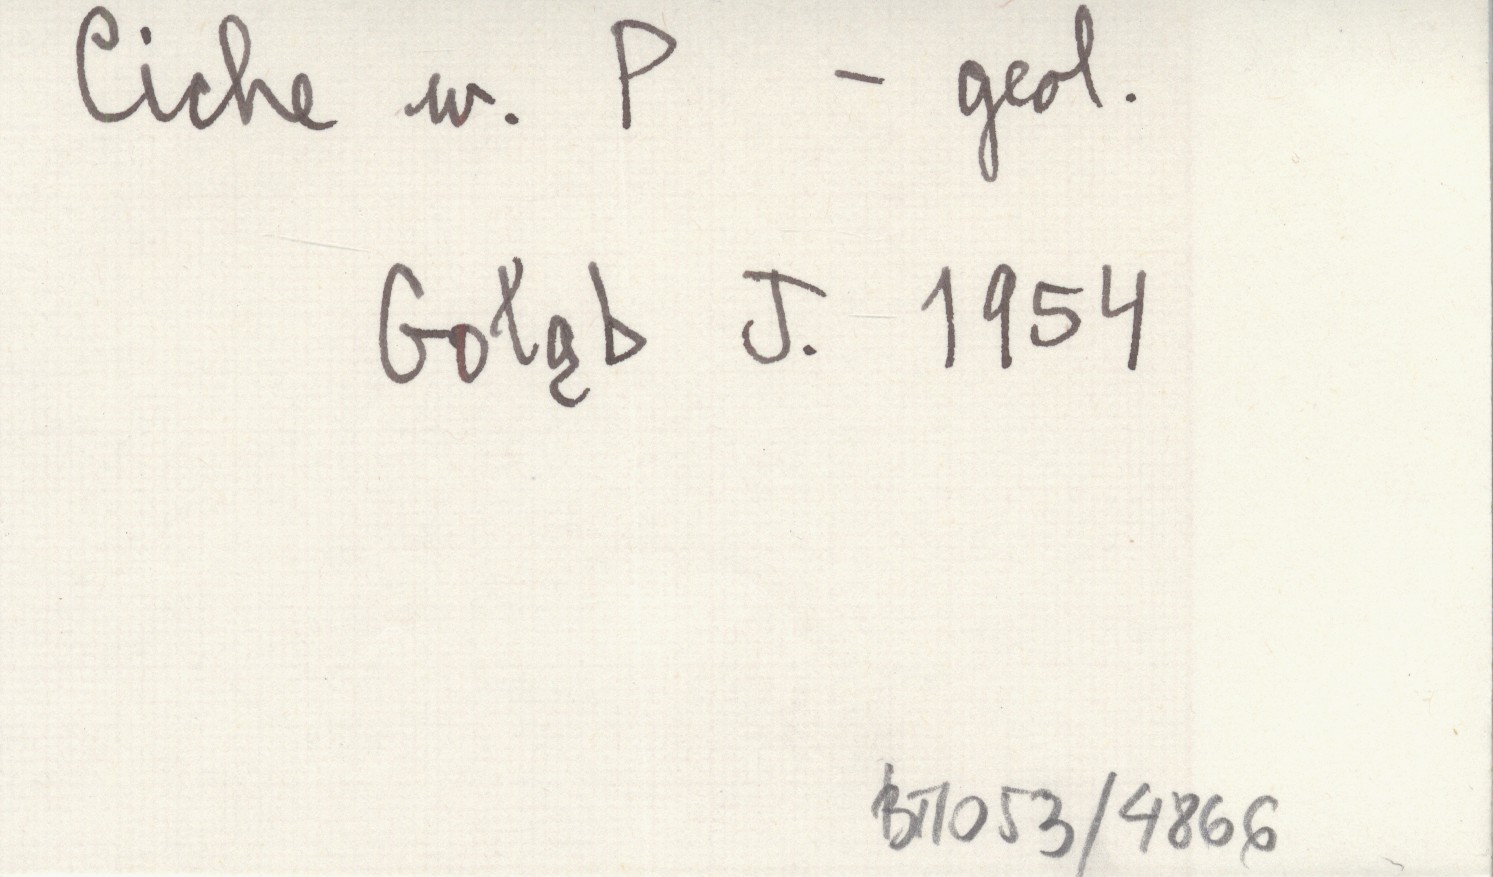 Ciche w. P - geol.
Gołąb J. 1954
/4866